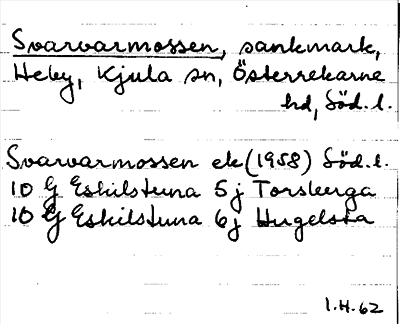 Svarvarmossen, sankmark,
Heby, Kjula sn, Österrekarne
hd, Söd. l.
Svarvarmossen ek (1958) Söd. l.
10 G Eskilstuna 5j Torsberga
10 G Eskilstuna 6j Hugelsta
I.H. 62